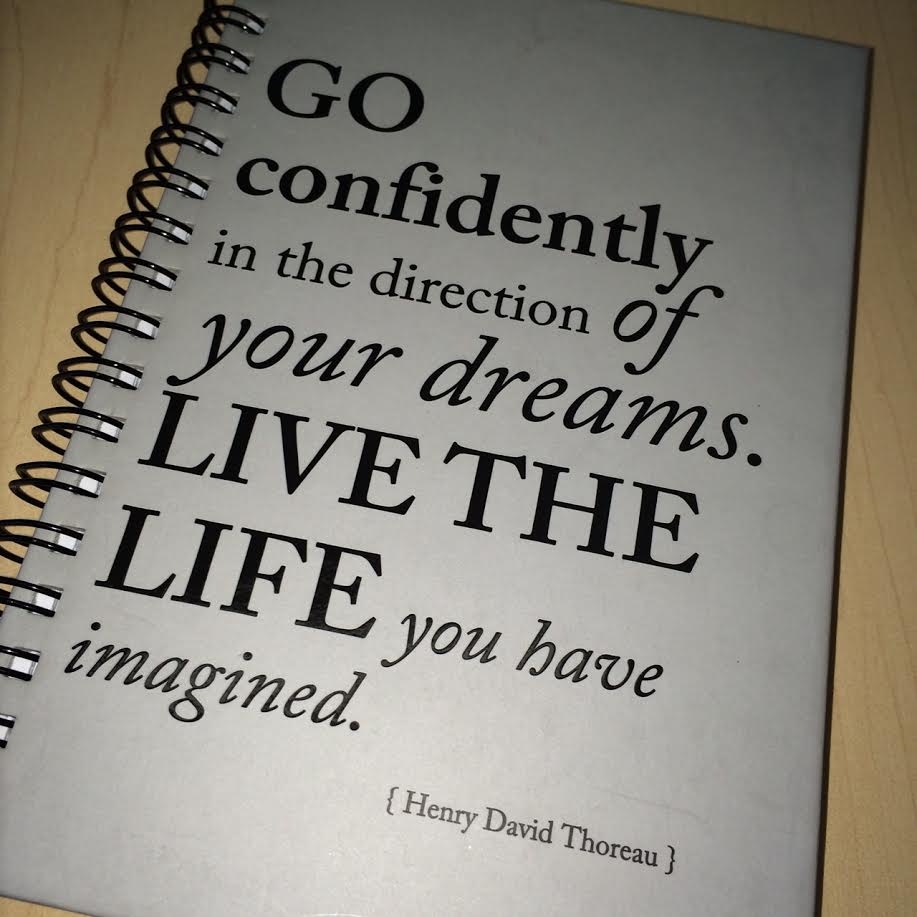 GO
confidently
in the direction of
your dreams.
LIVE THE
LIFE you have
imagined.
{ Henry David Thoreau }